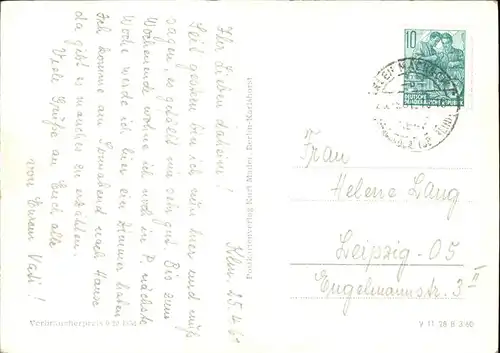 Klm. 25.4.6
Ihr Lieben daheim!
Seit gestern bin ich nun hier und muß
sagen, es gefällt mir sehr gut. Bis zum
Wochenende wohne ich noch in P. nächste
Woche werde ich hier ein Zimmer haben.
Ich komme am Sonnabend nach Hause
da gibt es manches zu erzählen.
Viele Grüße an Euch alle
von Eurem Vati!
Verbraucherpreis
Postkartenverlag Kurt Mader, Berlin-Karlshorst
10
DEUTSCHE
DEMOKRATISCHE REPUBLIK
Frau
Helene Lang
Leipzig-O5
Engelmannstr. 3 II
V 11 28 B 3/60